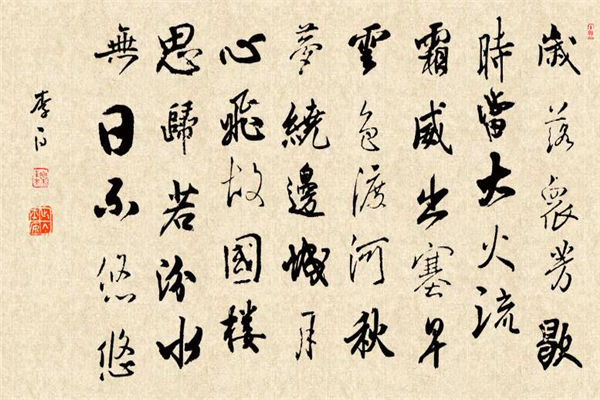 歲落衆芳歇
時當大火流
霜威出塞早
雲色渡河秋
夢繞邊城月
心飛故國樓
思歸若汾水
無日不悠悠
李